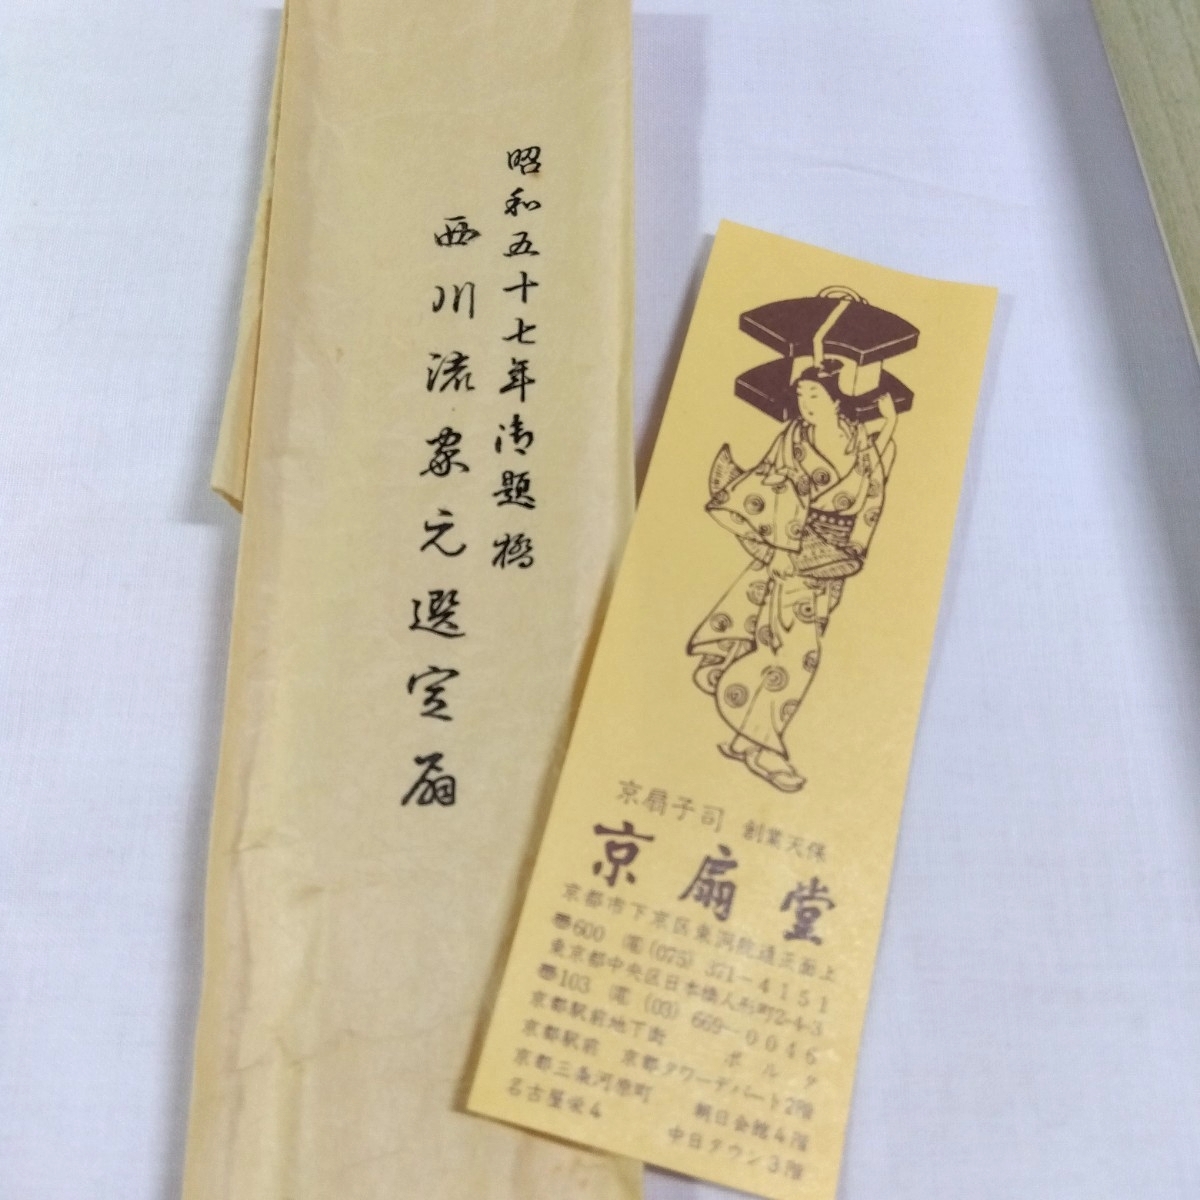 昭和五十七年御題橋
西川流家元選定扇
京扇子司 創業天保
京扇堂
京都市下京区東洞院通正面上
〒600 電(075) 371-4151
東京都中央区日本橋人形町2-4-3
〒103 電(03) 669-0046
京都駅前地下街 ポルタ
京都駅前 京都タワーデパート2階
京都三条河原町 朝日会館4階
名古屋栄4 中日タウン3階